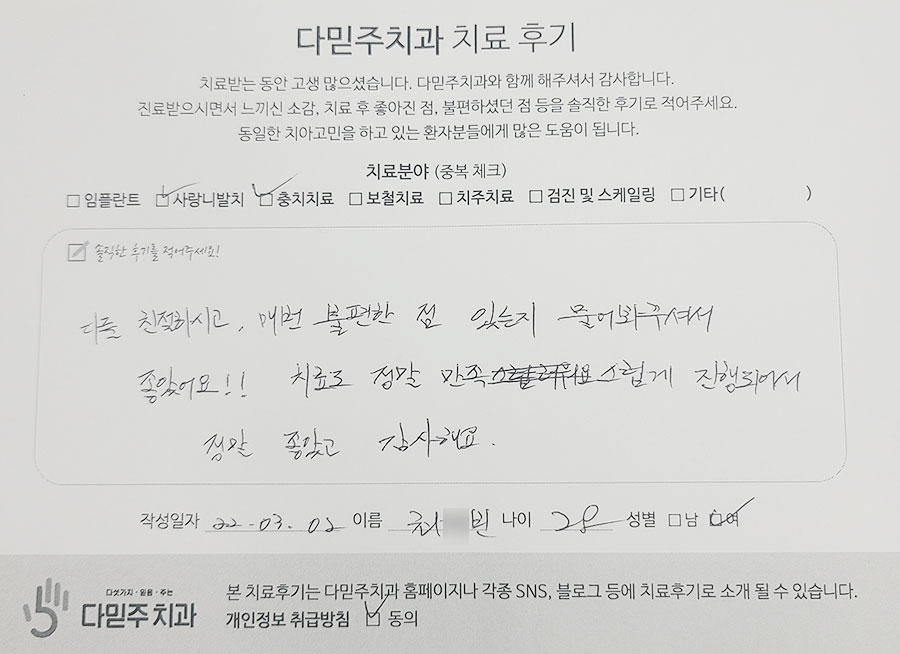 다믿주치과 치료 후기
치료받는 동안 고생 많으셨습니다. 다믿주치과와 함께 해주셔서 감사합니다.
진료받으시면서 느끼신 소감, 치료 후 좋아진 점, 불편하셨던 점 등을 솔직한 후기로 적어주세요.
동일한 치아고민을 하고 있는 환자분들에게 많은 도움이 됩니다.
치료분야 (중복 체크)
□ 임플란트 ☑ 사랑니발치 ☑ 충치치료 □ 보철치료 □ 치주치료 □ 검진 및 스케일링 □ 기타( )
솔직한 후기를 적어주세요!
다들 친절하시고, 매번 불편한 점 있는지 물어봐주셔서
좋았어요!! 치료도 정말 만족스럽게 진행되어서
정말 좋았고 감사해요.
작성일자 22.03.02 이름 최 빈 나이 28 성별 □남 ☑여
다섯가지·믿음·주는
다믿주치과
본 치료후기는 다믿주치과 홈페이지나 각종 SNS, 블로그 등에 치료후기로 소개 될 수 있습니다.
개인정보 취급방침 ☑ 동의